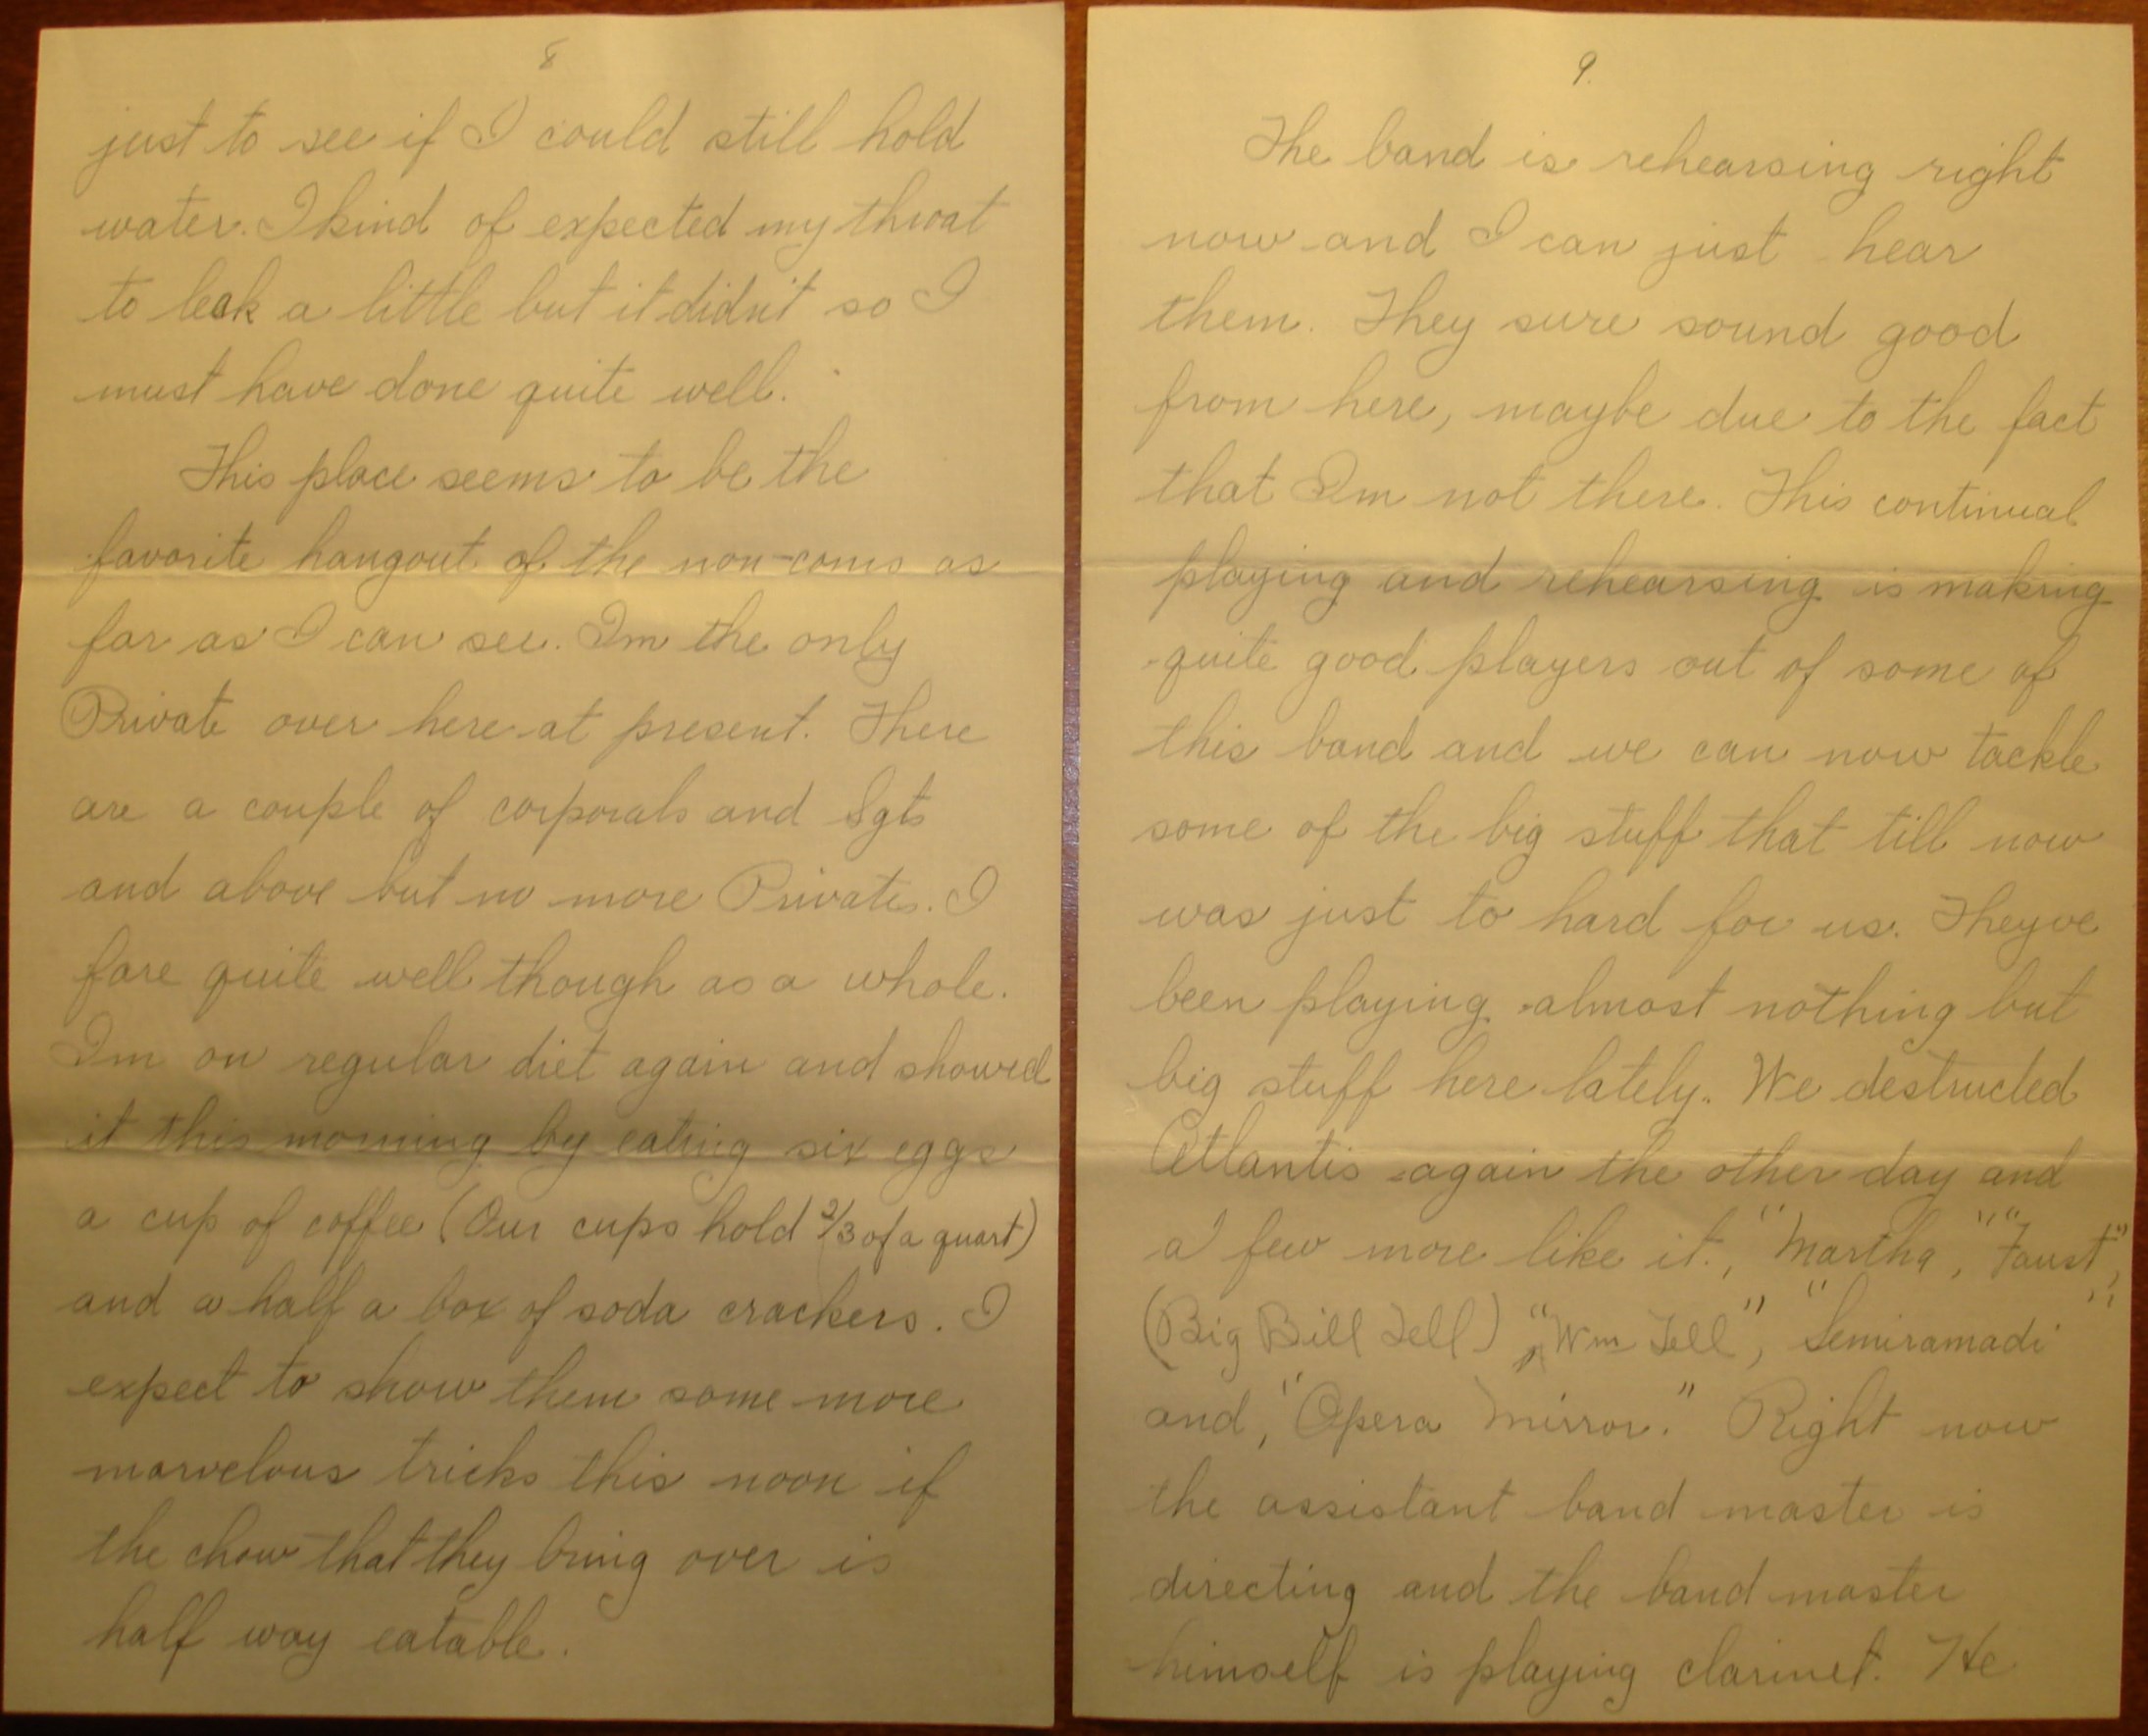 8
just to see if I could still hold
water. I kind of expected my throat
to leak a little but it didn't so I
must have done quite well.
This place seems to be the
favorite hangout of the non-coms as
far as I can see. Im the only
Private over here at present. There
are a couple of corporals and Sgts
and above but no more Privates. I
fare quite well though as a whole.
Im on regular diet again and showed
it this morning by eating six eggs
a cup of coffee (Our cups hold 2/3 of a quart)
and a half a box of soda crackers. I
expect to show them some more
marvelous tricks this noon if
the chow that they bring over is
half way eatable.
9.
The band is rehearsing right
now and I can just hear
them. They sure sound good
from here, maybe due to the fact
that Im not there. This continual
playing and rehearsing is making
quite good players out of some of
this band and we can now tackle
some of the big stuff that till now
was just to hard for us. Theyve
been playing almost nothing but
big stuff here lately. We destructed
Atlantis again the other day and
a few more like it., "Martha", "Faust",
(Big Bill Tell) "Wm Tell", "Semiramadi"
and, "Opera Mirror." Right now
the assistant band master is
directing and the band master
himself is playing clarinet. He